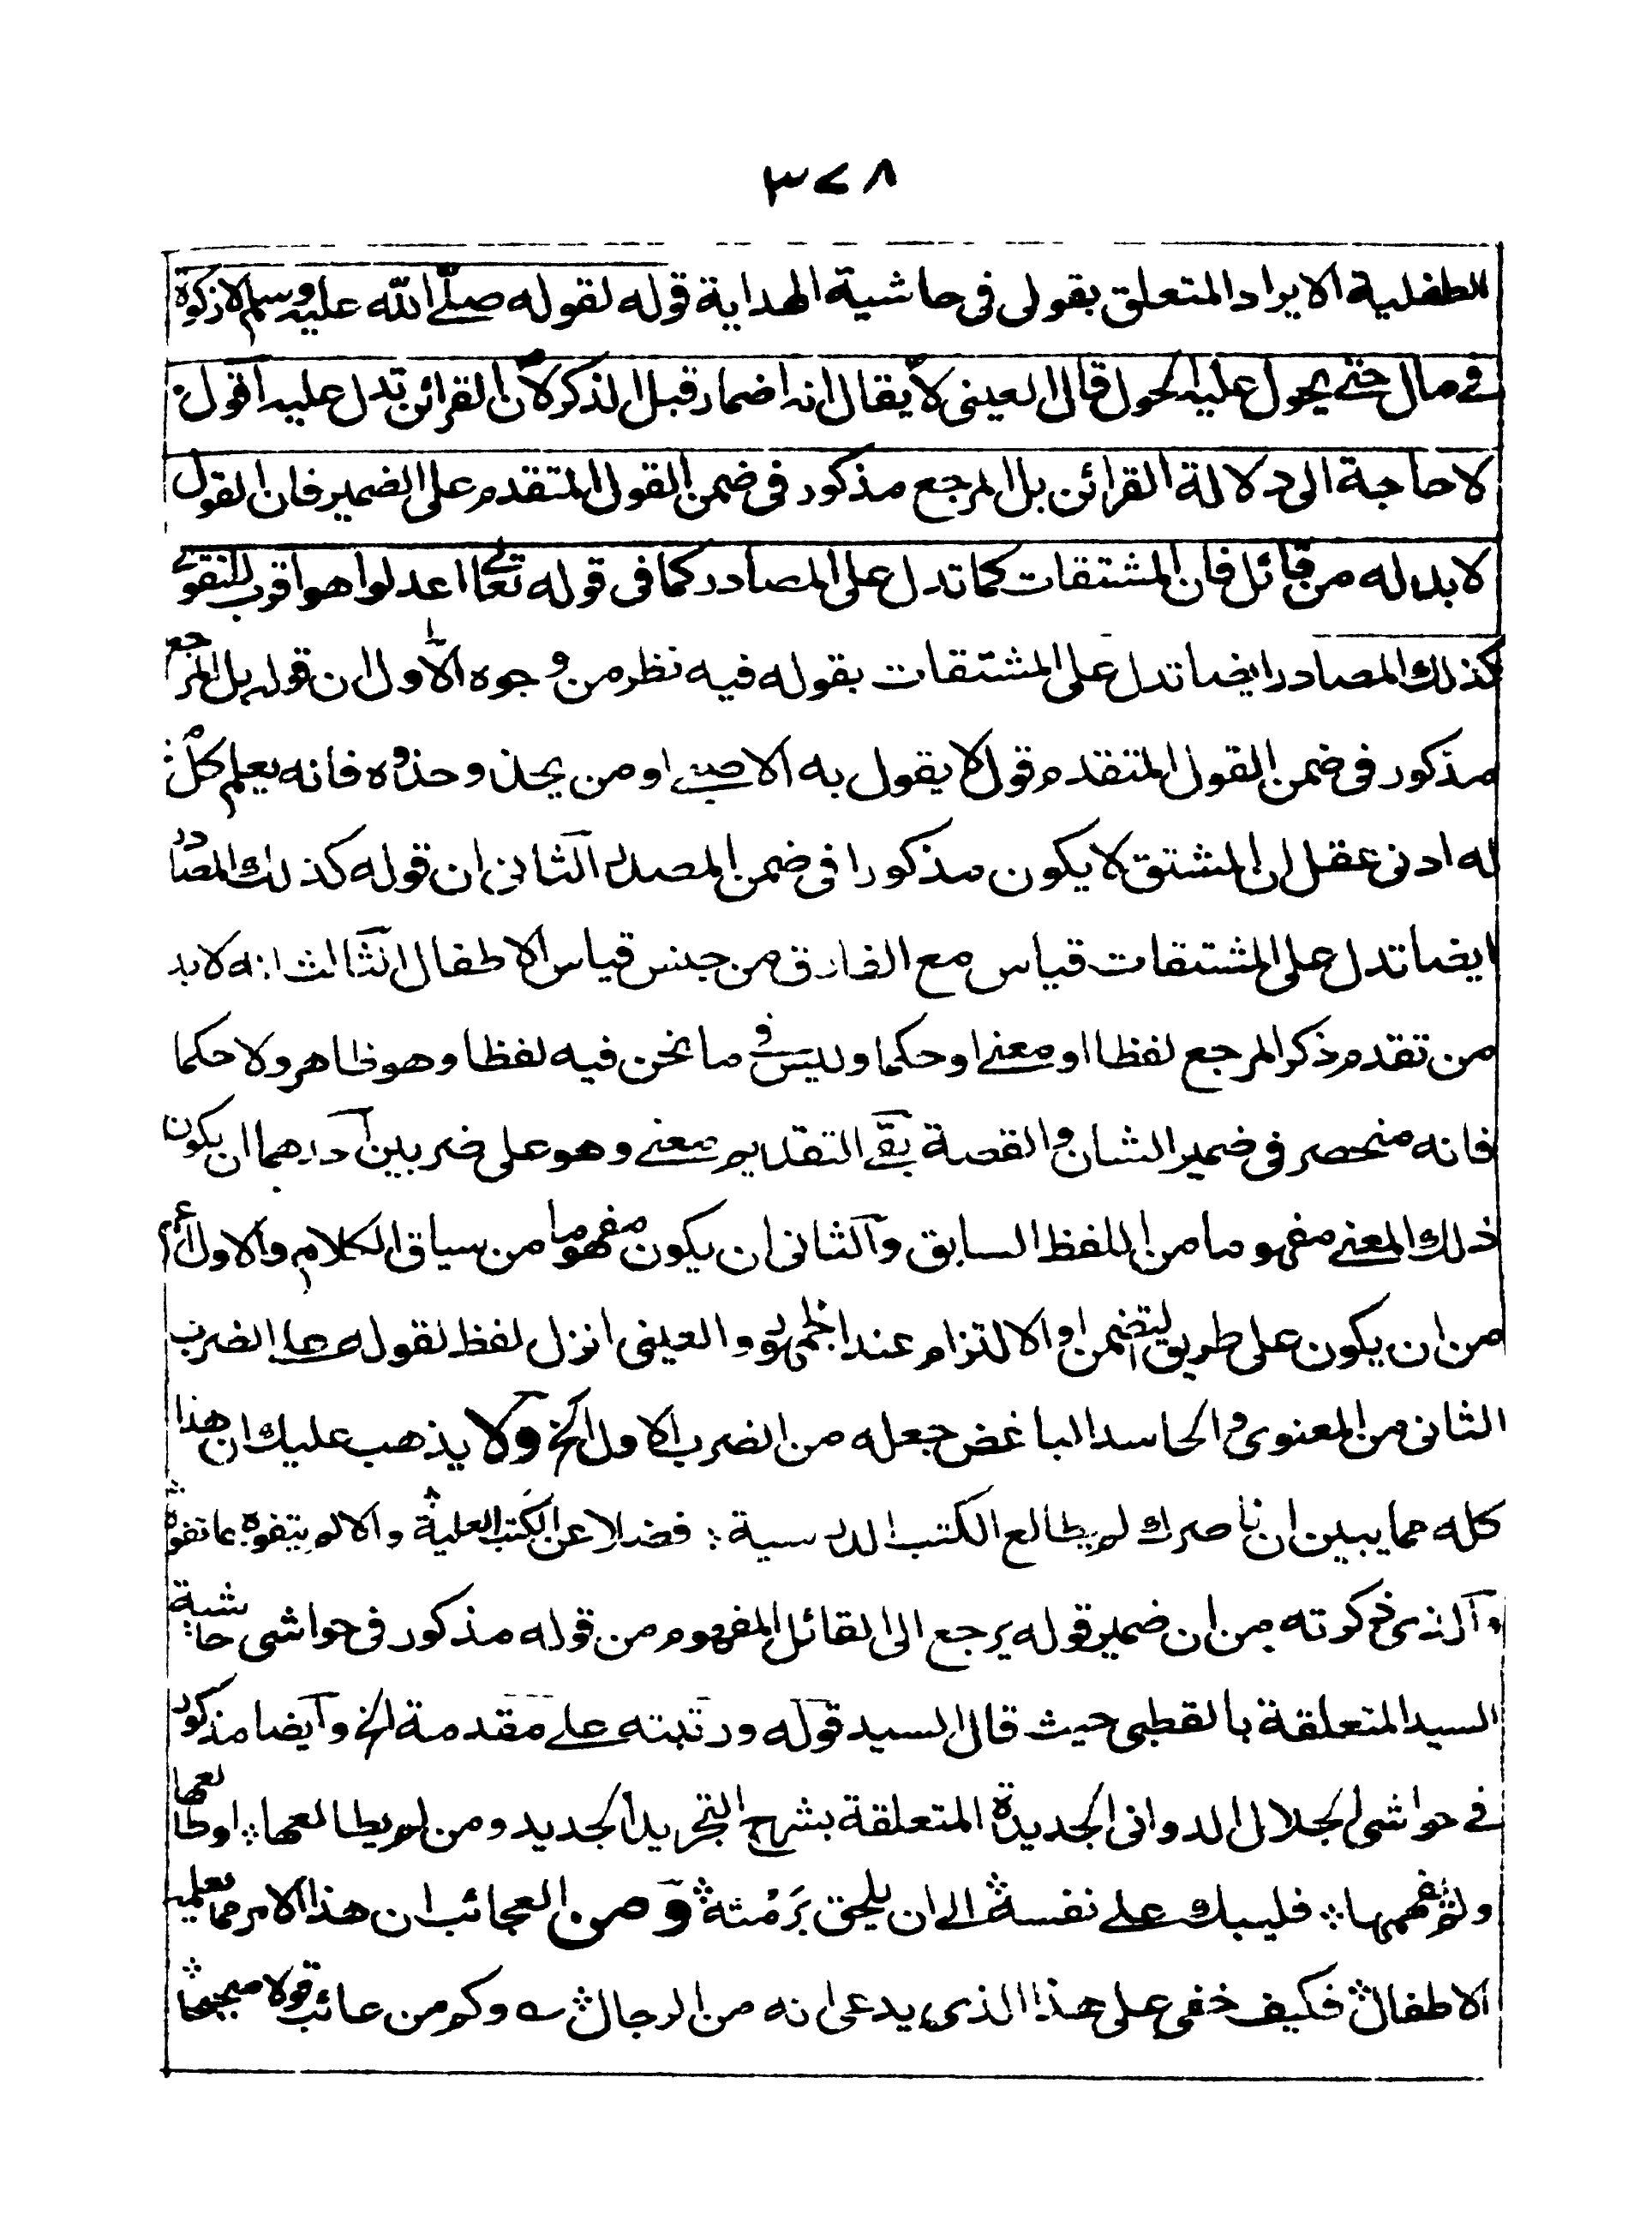 ٣٧٨
الطفلية الايراد المتعلق بقولى فى حاشية الهداية قوله لقوله صلى الله عليه وسلم لا زكوة
فى مال حتى يحول عليه الحول قال العينى لا يقال انه اضمار قبل الذكر لان القرائن تدل عليه اقول
لا حاجة الى دلالة القرائن بل المرجع مذكور فى ضمن القول المتقدم على الضمير فان القول
لا بد له من قائل فان المشتقات كما تدل على المصادر كما فى قوله تعالى اعدلوا هو اقرب للتقوى
كذلك المصادر ايضا تدل على المشتقات بقوله فيه نظر من وجوه الاول ان قوله بل المرجع
مذكور فى ضمن القول المتقدم قول لا يقول به الا صبى او من يحذو حذوه فانه يعلم كل من
له ادنى عقل ان المشتق لا يكون مذكورا فى ضمن المصدر الثانى ان قوله كذلك المصادر
ايضا تدل على المشتقات قياس مع الفارق من جنس قياس الاطفال الثالث انه لا بد
من تقدم ذكر المرجع لفظا او معنى او حكما وليس فى ما نحن فيه لفظا وهو ظاهر ولا حكما
فانه منحصر فى ضمير الشان والقصة بقى التقديم معنى وهو على ضربين احدهما ان يكون
ذلك المعنى مفهوما من اللفظ السابق والثانى ان يكون مفهوما من سياق الكلام والاول اعم
من ان يكون على طريق التضمن او الالتزام عند الجمهور والعينى انزل لفظ لقوله على الضرب
الثانى من المعنوى والحاسد الباغض جعله من الضرب الاول الخ ولا يذهب عليك ان هذا
كله مما يبين ان ناصرك لم يطالع الكتب الدرسية فضلا عن الكتب العلية والا لم يتفوه بما تفوه
والذى ذكرته من ان ضمير قوله يرجع الى القائل المفهوم من قوله مذكور فى حواشى حاشية
السيد المتعلقة بالقطبى حيث قال السيد قوله ورتبته على مقدمة الخ وايضا مذكور
فى حواشى الجلال الدوانى الجديدة المتعلقة بشرح التجريد الجديد ومن لم يطالعها او طالعها
ولم يفهمها فليبك على نفسه الى ان يلحق برمته ومن العجائب ان هذا الامر مما يعلمه
الاطفال فكيف خفى على هذا الذى يدعى انه من الرجال ؎ وكم من عائب قولا صحيحا